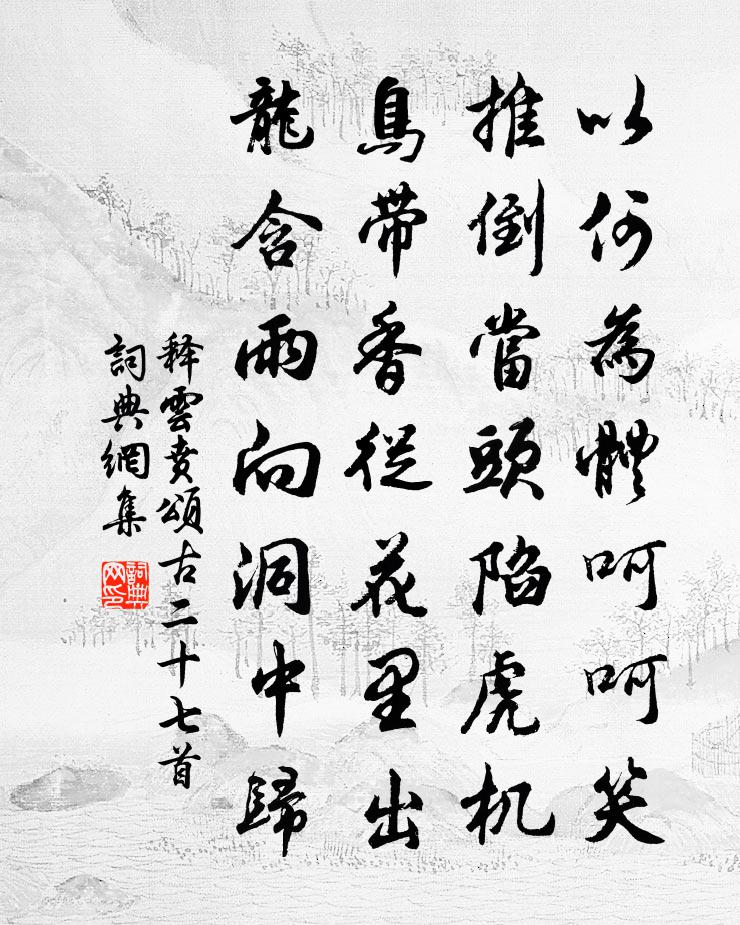 以何為體呵呵笑
推倒當頭陷虎机
鳥帶香從花里出
龍含雨向洞中歸
释雲賁頌古二十七首
詞典網集
詞典网印